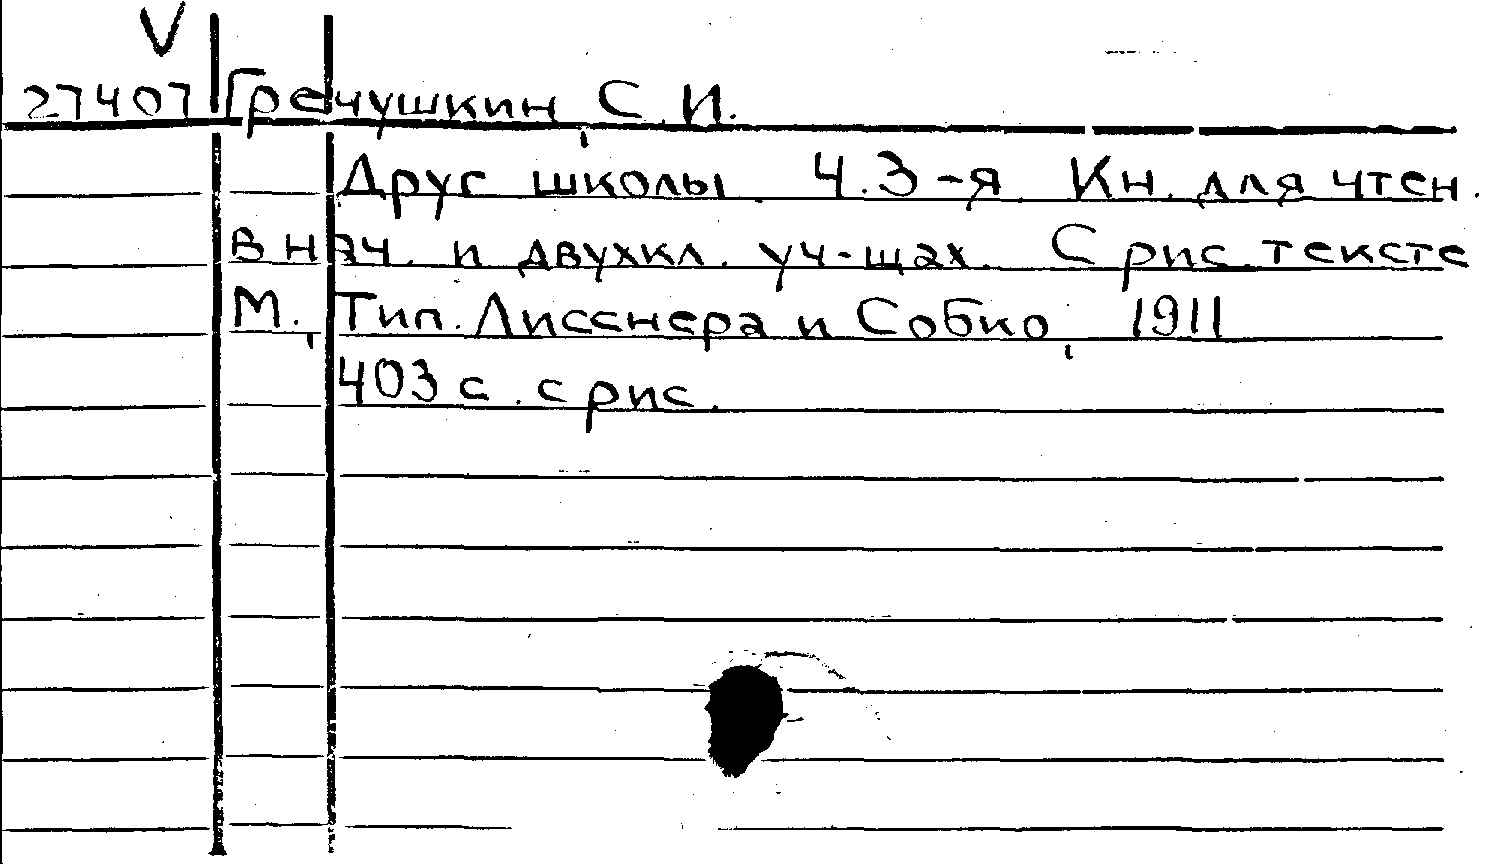 V
27407 Гречушкин, С. И.
Друг школы. Ч. 3-я Кн. для чтен.
в нач. и двухкл. уч-щах. С рис. тексте
М., Тип. Лисснера и Собко, 1911
403 с. с рис.